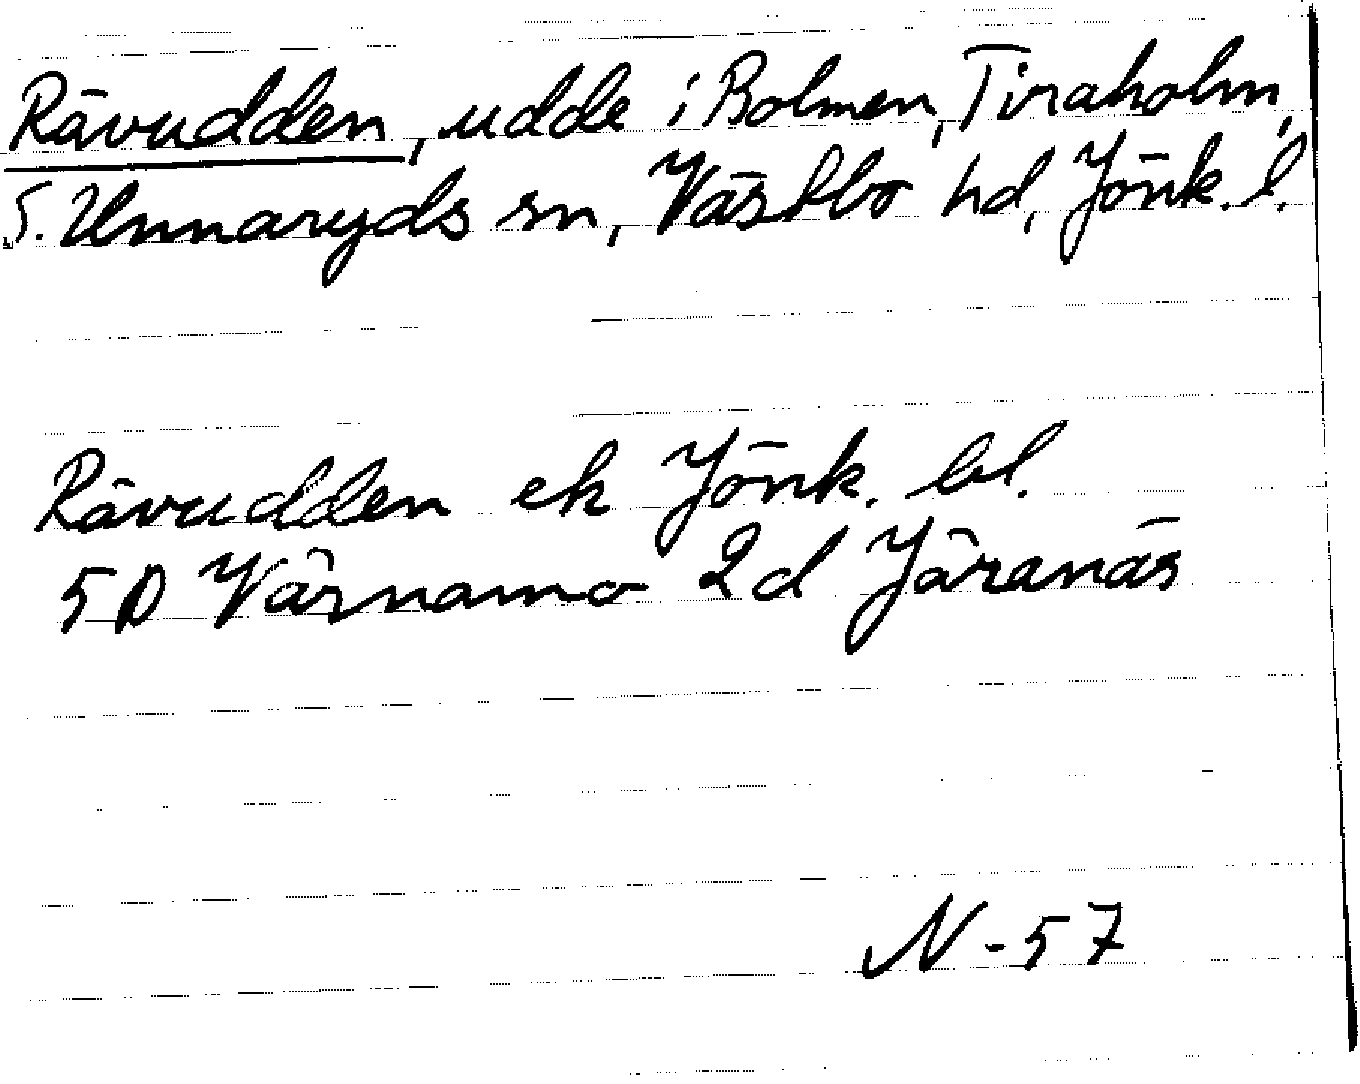 Rävudden, udde i Bolmen, Tiraholm,
S. Unnaryds sn, Västbo hd, Jönk. l.
Rävudden ek Jönk. bl.
5D Värnamo 2d Järanäs
N-57